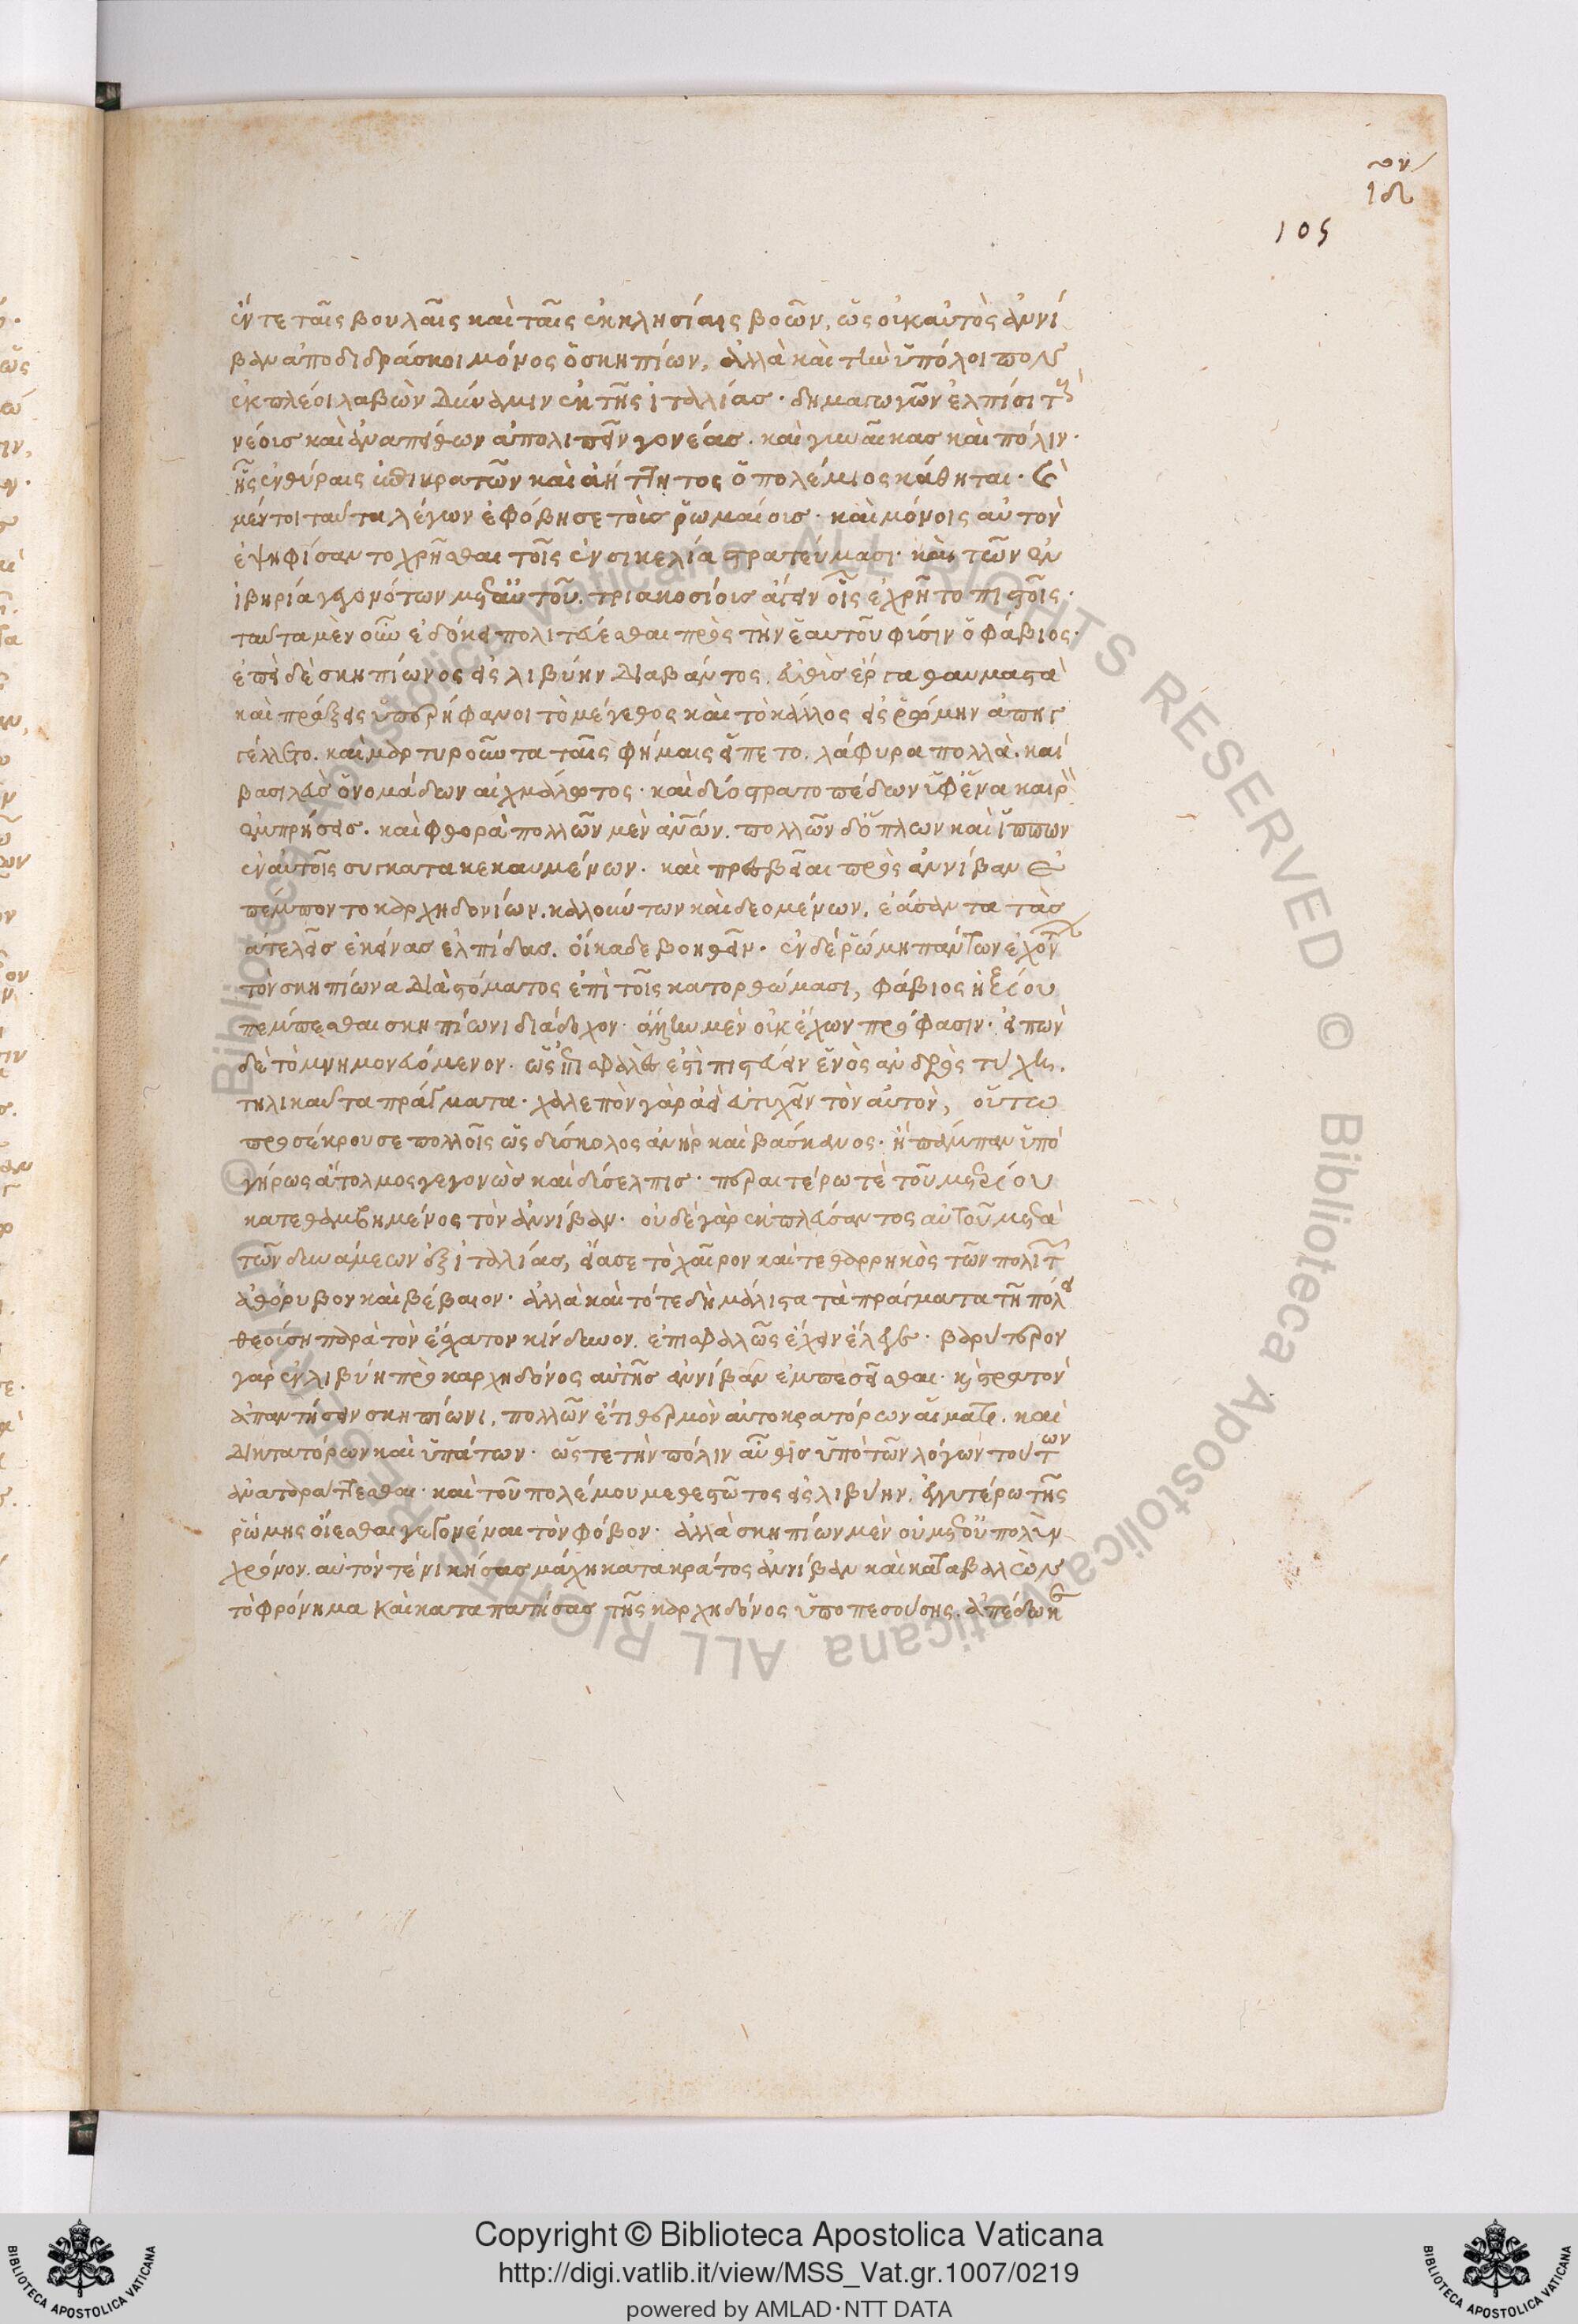 ον
ιδ
105
ἔν τε ταῖς βουλαῖς καὶ ταῖς ἐκκλησίαις βοῶν, ὡς οὐκ αὐτὸς ἀννί
βαν ἀποδιδράσκοι μόνος ὁ σκηπίων, ἀλλὰ καὶ τὴν ὑπόλοιπον
ἐκπλέοι λαβὼν δύναμιν ἐκ τῆς ἰταλίας· δημαγωγῶν ἐλπίσι τοὺς
νέους καὶ ἀναπείθων ἀπολιπεῖν γονέας. καὶ γυναῖκας καὶ πόλιν·
ἧς ἐν θύραις ἐπικρατῶν καὶ ἀήττητος ὁ πολέμιος κάθηται·
μέντοι ταῦτα λέγων ἐφόβησε τοὺς ῥωμαίους· καὶ μόνοις αὐτὸν
ἐψηφίσαντο χρῆσθαι τοῖς ἐν σικελία στρατεύμασι· καὶ τῶν ἐν
ἰβηρία γεγονότων μετ' αὐτοῦ. τριακοσίους ἄγειν οἷς ἐχρῆτο πιστοῖς·
ταῦτα μὲν οὖν ἐδόκει πολιτεύεσθαι πρὸς τὴν ἑαυτοῦ φύσιν ὁ φάβιος·
ἐπεὶ δὲ σκηπίωνος εἰς λιβύην διαβάντος. εὐθὺς ἔργα θαυμαστὰ
καὶ πράξεις ὑπερήφανοι τὸ μέγεθος καὶ τὸ κάλλος εἰς ῥώμην ἀπηγ
γέλλετο. καὶ μαρτυροῦντα ταῖς φήμαις εἵπετο. λάφυρα πολλὰ. καὶ
βασιλεὺς ὁ νομάδων αἰχμάλωτος· καὶ δύο στρατοπέδων ὑφ' ἕνα καιρὸν
ἐμπρήσεις. καὶ φθορὰ πολλῶν μὲν ἀνῶν. πολλῶν δ' ὅπλων καὶ ἵππων
ἐν αὐτοῖς συγκατακεκαυμένων. καὶ πρεσβεῖαι πρὸς ἀννίβαν ἐ
πέμποντο καρχηδονίων. καλούντων καὶ δεομένων. ἐάσαντα τὰς
ἀτελεῖς ἐκείνας ἐλπίδας. οἴκαδε βοηθεῖν· ἐν δὲ ῥώμη πάντων ἐχόντων
τὸν σκηπίωνα διὰ στόματος ἐπὶ τοῖς κατορθώμασι, φάβιος ἠξίου
πέμπεσθαι σκηπίωνι διάδοχον· ἄλλην μὲν οὐκ ἔχων πρόφασιν· εἰπὼν
δὲ τὸ μνημονευόμενον· ὡς ἐπισφαλὲς ἐστὶ πιστεύειν ἑνὸς ἀνδρὸς τύχη.
τηλικαῦτα πράγματα· χαλεπὸν γὰρ ἀεὶ εὐτυχεῖν τὸν αὐτὸν, οὕτω
προσέκρουσε πολλοῖς ὡς δύσκολος ἀνὴρ καὶ βάσκανος· ἢ πάμπαν ὑπὸ
γήρως ἄτολμος γεγονὼς καὶ δύσελπις· περαιτέρω τὲ τοῦ μετρίου
κατεθαμβημένος τὸν ἀννίβαν· οὐδὲ γὰρ ἐκπλεύσαντος αὐτοῦ μετὰ
τῶν δυνάμεων ἐξ ἰταλίας, εἴασε τὸ χαῖρον καὶ τεθαρρηκὸς τῶν πολιτῶν
ἀθόρυβον καὶ βέβαιον· ἀλλὰ καὶ τότε δὴ μάλιστα τὰ πράγματα τῆ πόλει
θεούση παρὰ τὸν ἔσχατον κίνδυνον. ἐπισφαλῶς ἔχειν ἔλεγε· βαρύτερον
γὰρ ἐν λιβύη πρὸ καρχηδόνος αὐτῆς ἀννίβαν ἐμπεσεῖσθαι· καὶ στρατὸν
ἀπαντήσειν σκηπίωνι, πολλῶν ἔτι θερμὸν αὐτοκρατόρων αἵματι. καὶ
δικτατόρων καὶ ὑπάτων· ὥστε τὴν πόλιν αὖθις ὑπὸ τῶν λόγων τούτων
ἀναταράττεσθαι· καὶ τοῦ πολέμου μεθεστῶτος εἰς λιβύην. ἐγγυτέρω τῆς
ῥώμης οἴεσθαι γεγονέναι τὸν φόβον· ἀλλὰ σκηπίων μὲν οὐ μετ' οὐ πολὺν
χρόνον. αὐτόν τε νικήσας μάχη κατακράτος ἀννίβαν καὶ καταβαλὼν
τὸ φρόνημα καὶ καταπατήσας τῆς καρχηδόνος ὑποπεσούσης. ἀπέδωκε
Copyright © Biblioteca Apostolica Vaticana
http://digi.vatlib.it/view/MSS_Vat.gr.1007/0219
powered by AMLAD·NTT DATA